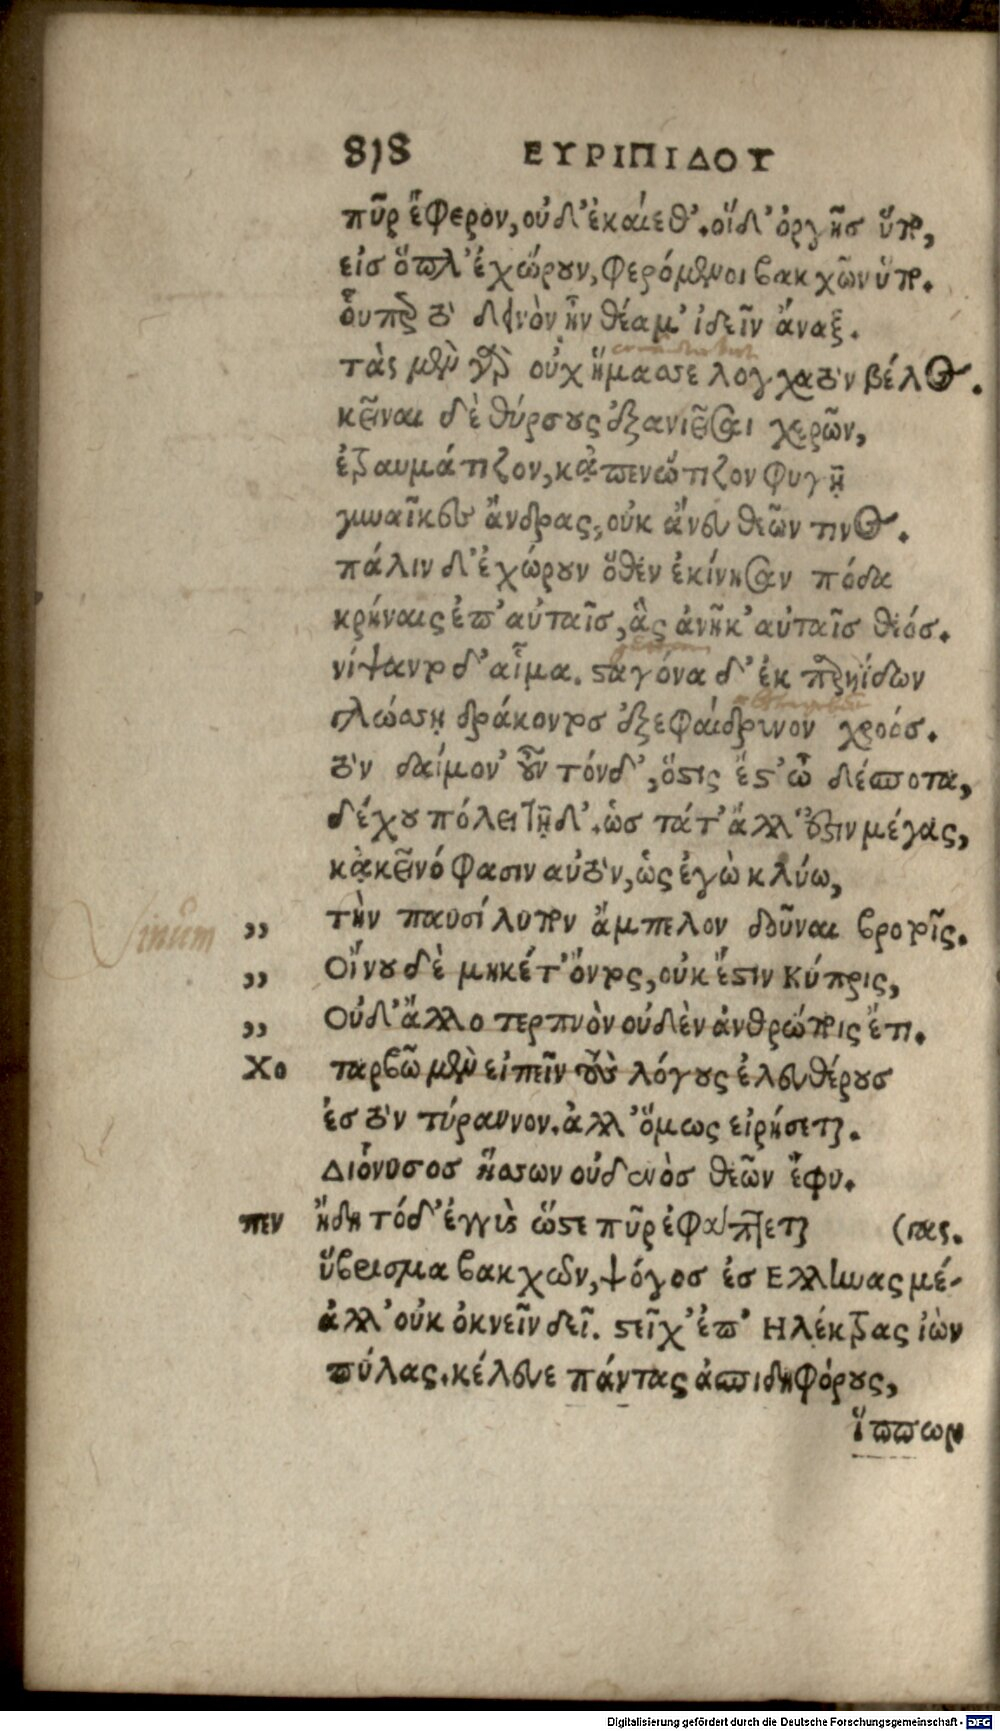 818 ΕΥΡΙΠΙΔΟΥ
πῦρ ἔφερον, οὐδ' ἐκαίεθ'. οἵδ' ὀργῆσ ὕπο,
εἰσ ὅπλ' ἐχώρουν, φερόμενοι βακχῶν ὕπο.
οὗπερ τὸ δεινὸν ἦν θέαμ' ἰδεῖν ἄναξ.
τὰς μὲν γὰρ οὐχ ᾕμασσε λογχατὸν βέλος.
κεῖναι δὲ θύρσους ἐξανιεῖσαι χερῶν,
ἐτραυμάτιζον, κἀπενώτιζον φυγῇ
γυναῖκες ἄνδρας, οὐκ ἄνευ θεῶν τινος.
πάλιν δ' ἐχώρουν ὅθεν ἐκίνησαν πόδα
κρήναις ἐπ' αὐταῖσ, ἃς ἀνῆκ' αὐταῖσ θεόσ.
νίψαντο δ' αἷμα. σταγόνα δ' ἐκ παρηΐδων
γλώσσῃ δράκοντοσ ἐξεφαίδρινον χροόσ.
τὸν δαίμον' οὖν τόνδ', ὅστις ἔστ' ὦ δέσποτα,
δέχου πόλει τῇδ'. ὡσ τάτ' ἄλλ' ἐστὶν μέγας,
κἀκεῖνό φασιν αὐτὸν, ὡς ἐγὼ κλύω,
Vinum ,, τὴν παυσίλυπον ἄμπελον δοῦναι βροτοῖς.
,, Οἴνου δὲ μηκέτ' ὄντος, οὐκ ἔστιν Κύπρις,
,, Οὐδ' ἄλλο τερπνὸν οὐδὲν ἀνθρώποις ἔτι.
Χο ταρβῶ μὲν εἰπεῖν τοὺς λόγους ἐλευθέρουσ
ἐσ τὸν τύραννον. ἀλλ' ὅμως εἰρήσεται.
Διόνυσοσ ἥσσων οὐδενὸσ θεῶν ἔφυ.
πεν ἤδη τόδ' ἐγγὺς ὥστε πῦρ ἐφάπτεται (γας.
ὕβρισμα βακχῶν, ψόγοσ ἐσ Ελληνας μέ-
ἀλλ' οὐκ ὀκνεῖν δεῖ. στεῖχ' ἐπ' Ηλέκτρας ἰὼν
πύλας. κέλευε πάντας ἀσπιδηφόρους,
ἵππων
Digitalisierung gefördert durch die Deutsche Forschungsgemeinschaft - DFG